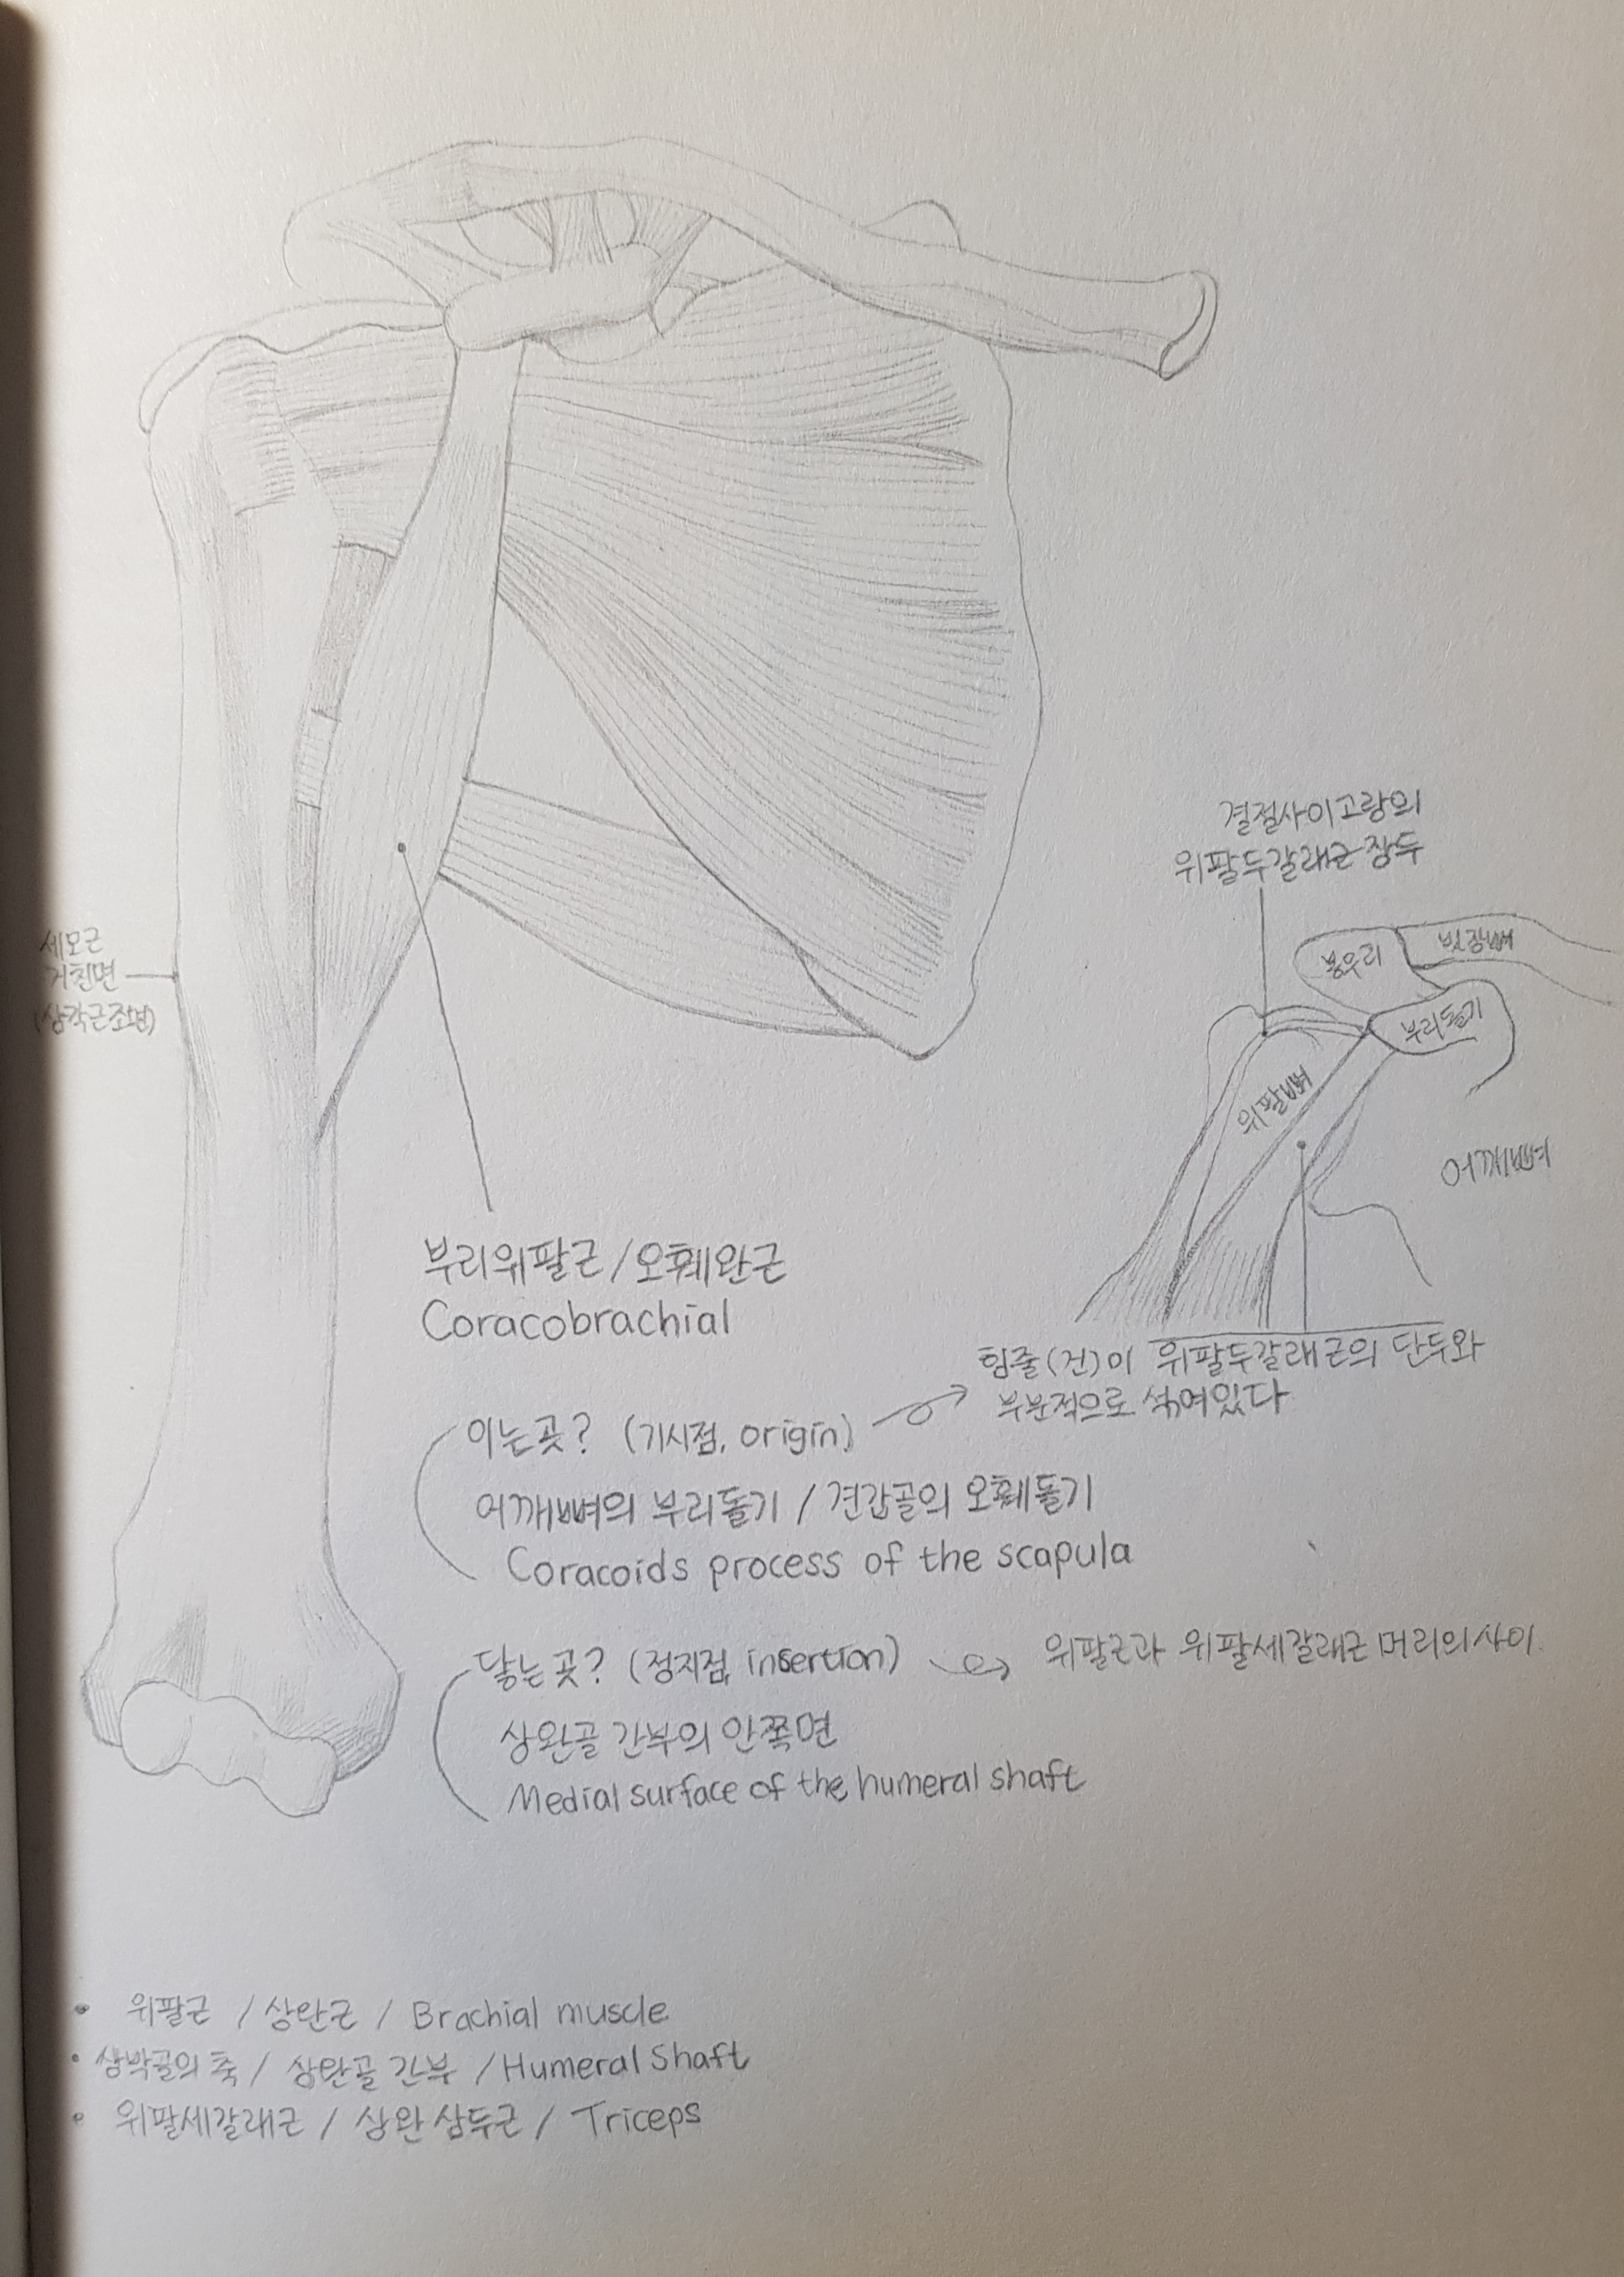 결절사이고랑의
위팔두갈래근 장두
봉우리
빗장뼈
부리돌기
위팔뼈
어깨뼈
세모근
거친면
(삼각근조면)
부리위팔근/오훼완근
Coracobrachial
힘줄(건)이 위팔두갈래근의 단두와
부분적으로 섞여있다
이는곳? (기시점, origin)
어깨뼈의 부리돌기 / 견갑골의 오훼돌기
Coracoids process of the scapula
닿는곳? (정지점, insertion)
위팔근과 위팔세갈래근 머리의 사이.
상완골 간부의 안쪽면
Medial surface of the humeral shaft
• 위팔근 / 상완근 / Brachial muscle
• 상박골의 축 / 상완골 간부 / Humeral Shaft
• 위팔세갈래근 / 상완삼두근 / Triceps